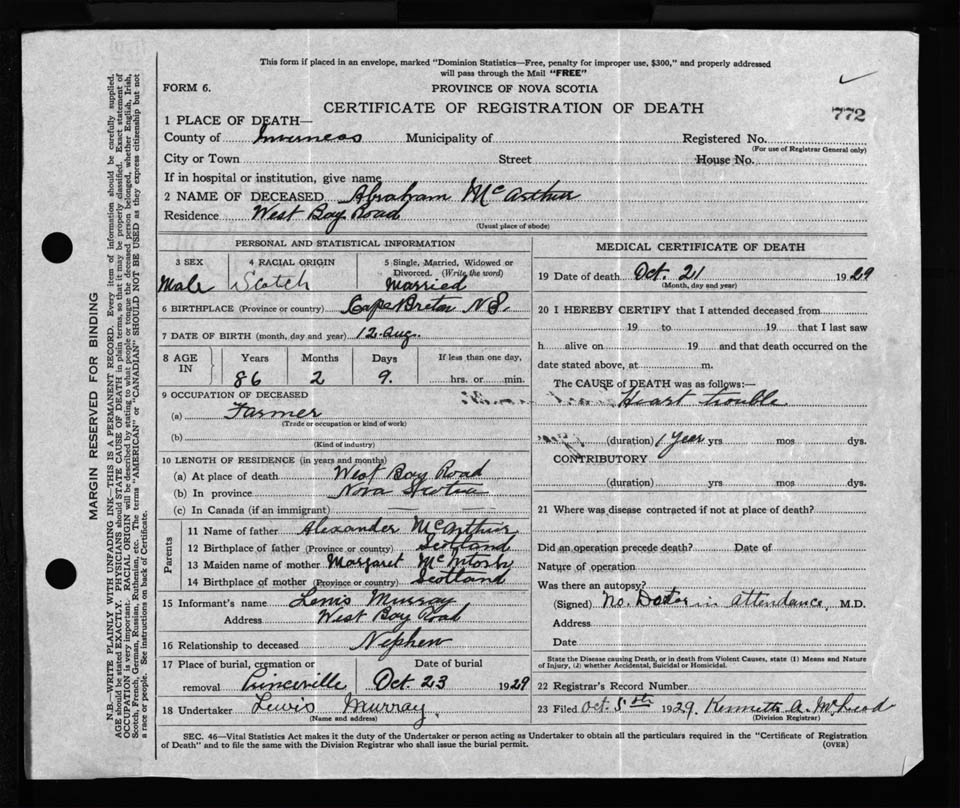 This form if placed in an envelope, marked "Dominion Statistics—Free, penalty for improper use, $300," and properly addressed
will pass through the Mail "FREE"
FORM 6.
PROVINCE OF NOVA SCOTIA
CERTIFICATE OF REGISTRATION OF DEATH
772
1 PLACE OF DEATH—
County of Inverness Municipality of Registered No.
(For use of Registrar General only)
City or Town Street House No.
If in hospital or institution, give name
2 NAME OF DECEASED Abraham McArthur
Residence West Bay Road
(Usual place of abode)
PERSONAL AND STATISTICAL INFORMATION
3 SEX 4 RACIAL ORIGIN 5 Single, Married, Widowed or
Divorced. (Write the word)
Male Scotch Married
6 BIRTHPLACE (Province or country) Cape Breton N S.
7 DATE OF BIRTH (month, day and year) 12. Aug.
8 AGE IN Years Months Days If less than one day,
86 2 9. hrs. or min.
9 OCCUPATION OF DECEASED
(a) Farmer
(Trade or occupation or kind of work)
(b)
(Kind of industry)
10 LENGTH OF RESIDENCE (in years and months)
(a) At place of death West Bay Road
(b) In province Nova Scotia
(c) In Canada (if an immigrant)
Parents
11 Name of father Alexander McArthur
12 Birthplace of father (Province or country) Scotland
13 Maiden name of mother Margaret McIntosh
14 Birthplace of mother (Province or country) Scotland
15 Informant's name Lewis Murray
Address West Bay Road
16 Relationship to deceased Nephew
17 Place of burial, cremation or Date of burial
removal Princeville Oct. 23 1929
18 Undertaker Lewis Murray
(Name and address)
MEDICAL CERTIFICATE OF DEATH
19 Date of death Oct. 21 1929
(Month, day and year)
20 I HEREBY CERTIFY that I attended deceased from
19 to 19 that I last saw
h alive on 19 and that death occurred on the
date stated above, at m.
The CAUSE of DEATH was as follows:—
Heart trouble
(duration) 1 Year yrs mos dys.
CONTRIBUTORY
(duration) yrs. mos. dys.
21 Where was disease contracted if not at place of death?
Did an operation precede death? Date of
Nature of operation
Was there an autopsy?
(Signed) No. Doctor in attendance, M.D.
Address
Date
State the Disease causing Death, or in death from Violent Causes, state (1) Means and Nature
of Injury, (2) whether Accidental, Suicidal or Homicidal.
22 Registrar's Record Number
23 Filed Oct 5th 1929. Kenneth A. McLeod
(Division Registrar)
SEC. 46—Vital Statistics Act makes it the duty of the Undertaker or person acting as Undertaker to obtain all the particulars required in the "Certificate of Registration
of Death" and to file the same with the Division Registrar who shall issue the burial permit.
(OVER)
MARGIN RESERVED FOR BINDING
N.B.—WRITE PLAINLY WITH UNFADING INK—THIS IS A PERMANENT RECORD. Every item of information should be carefully supplied.
AGE should be stated EXACTLY. PHYSICIANS should STATE CAUSE OF DEATH in plain terms, so that it may be properly classified. Exact statement of
OCCUPATION is very important. RACIAL ORIGIN will be described by stating to what people or tongue the deceased person belonged, whether English, Irish,
Scotch, French, German, Russian, Ruthenian, etc. The terms "AMERICAN" or "CANADIAN" SHOULD NOT BE USED as they express citizenship but not
a race or people. See instructions on back of Certificate.